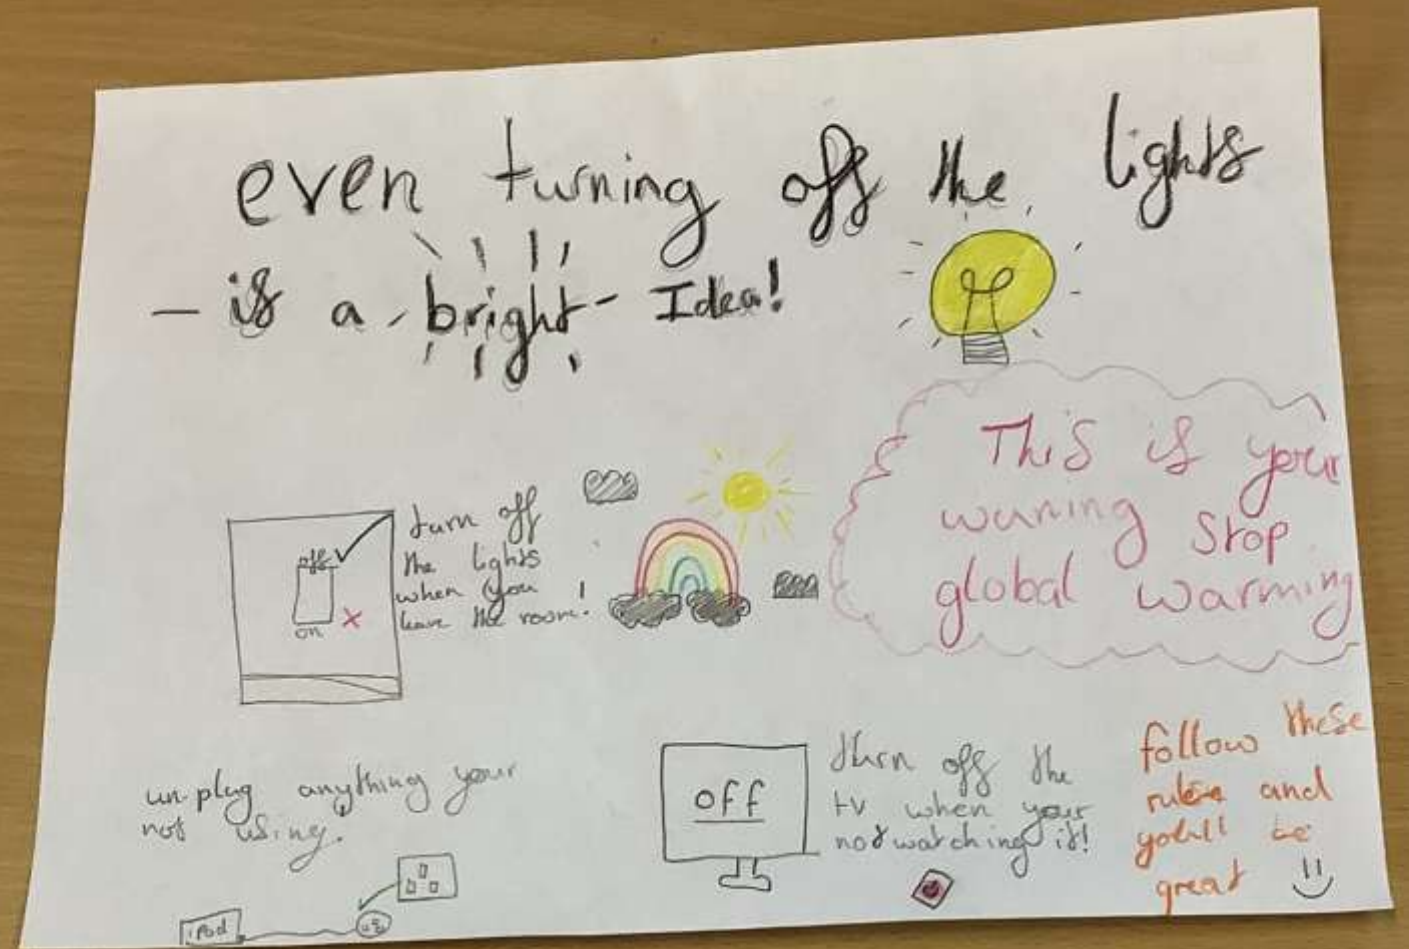 even turning off the lights
is a bright Idea!
This is your
warning Stop
global warming
off
on
turn off
the lights
when you
leave the room!
un-plug anything your
not using.
iPod
off
turn off the
tv when your
not watching it!
follow these
rules and
you'll be
great